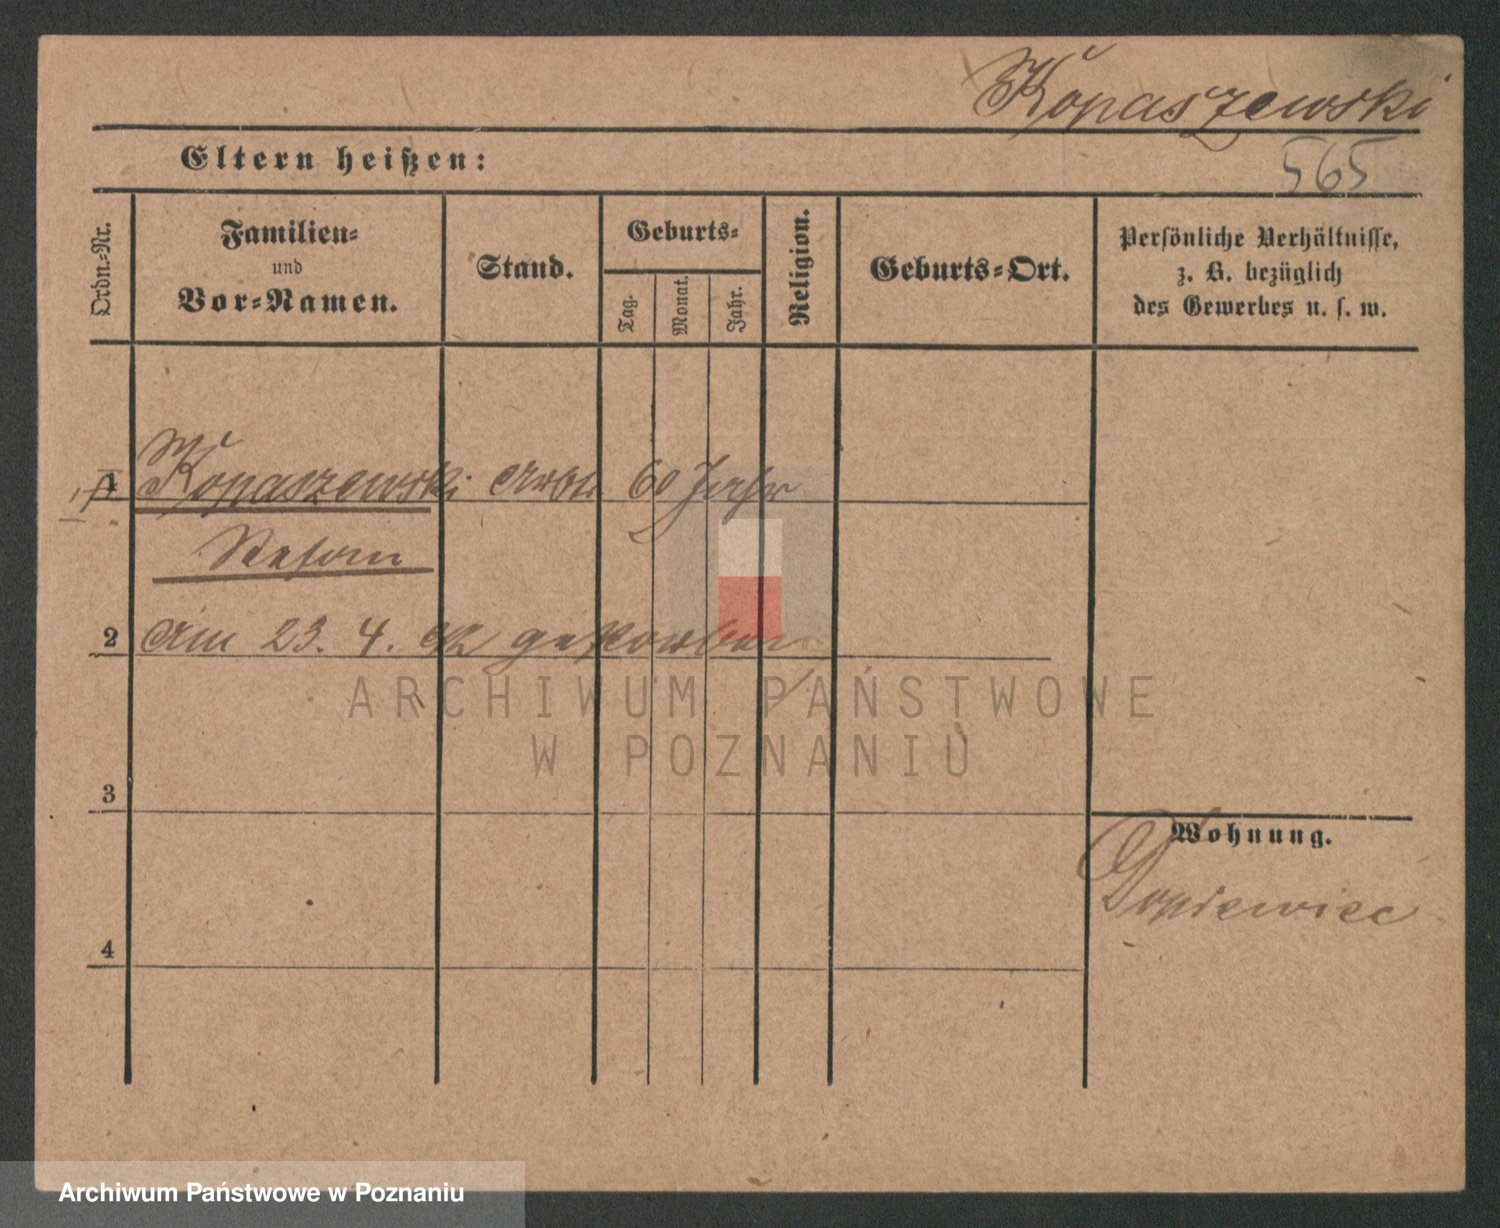 Kopaszewski
Eltern heißen:
565
Ordn.-Nr.
Familien-
und
Vor-Namen.
Stand.
Geburts-
Tag.
Monat.
Jahr.
Religion.
Geburts-Ort.
Persönliche Verhältnisse,
z. B. bezüglich
des Gewerbes u. s. w.
1 Kopaszewski Arbtr 60 Jahr
2 Am 23. 4. 92 gestorben
ARCHIWUM PAŃSTWOWE
W POZNANIU
3
Wohnung.
Dopiewiec
4
Archiwum Państwowe w Poznaniu